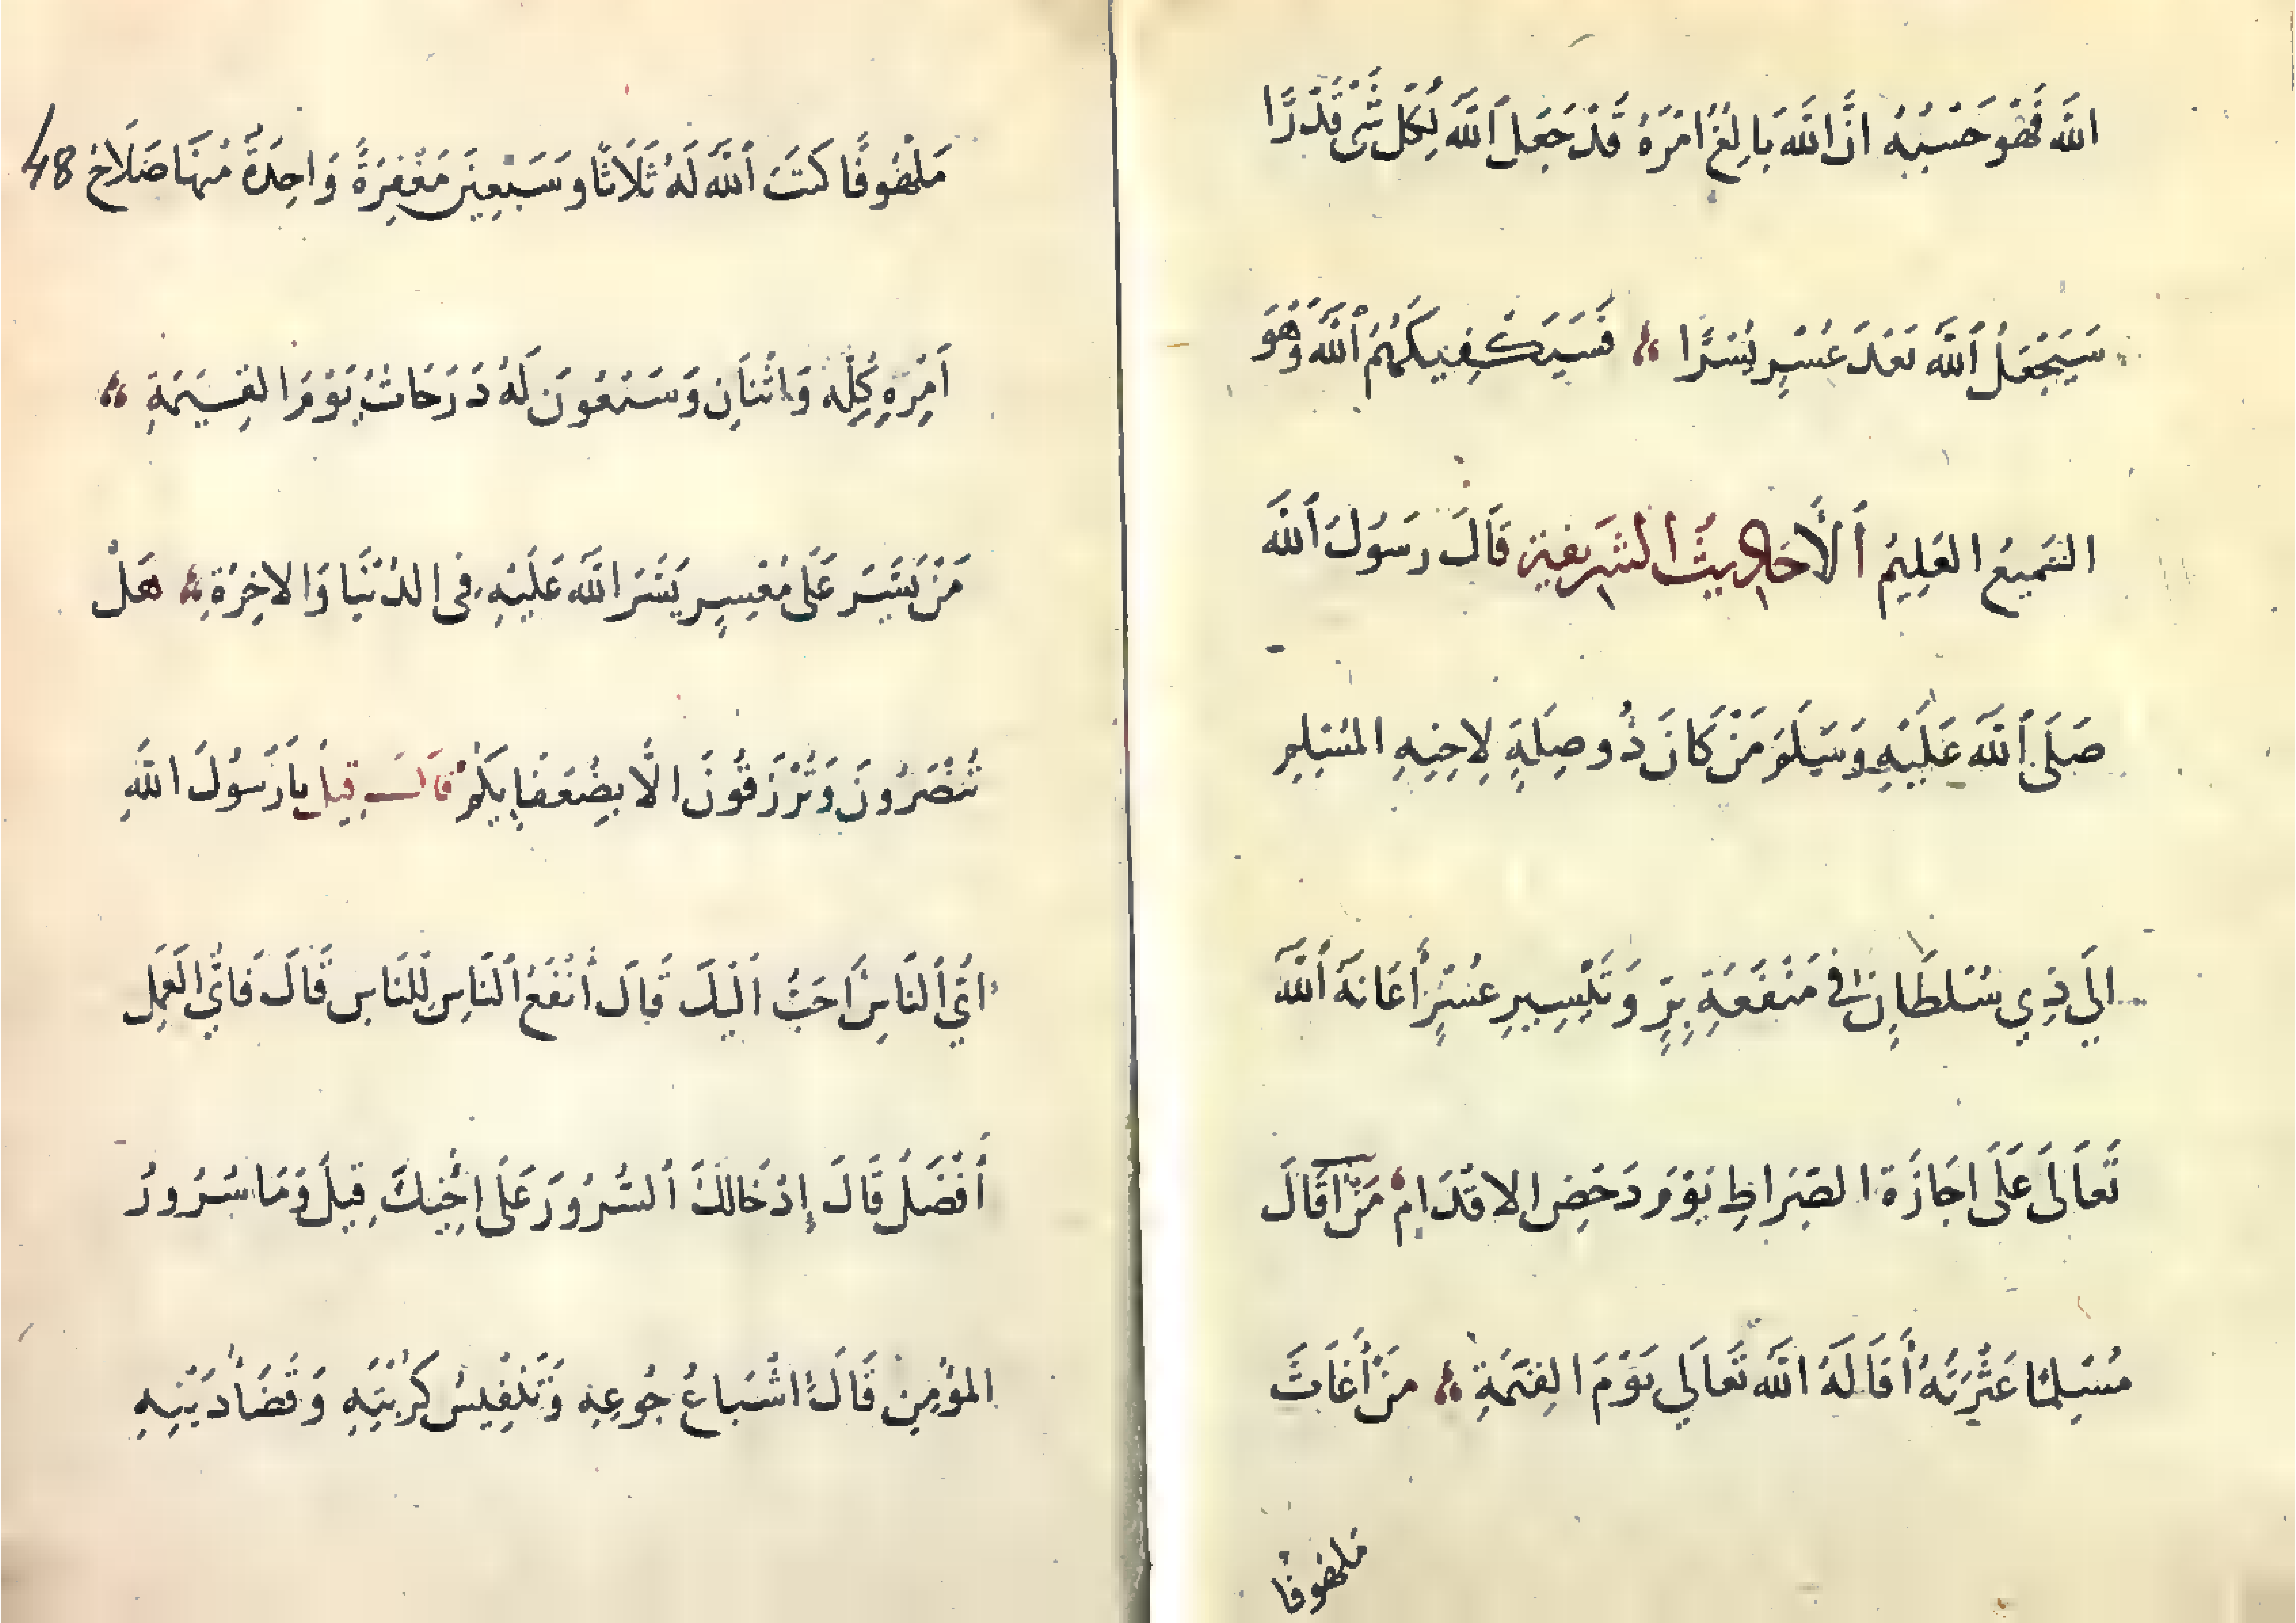 اللَّهِ فَهُوَ حَسْبُهُ اِنَّ اللَّهَ بَالِغُ اَمْرِهِ قَدْ جَعَلَ اللَّهُ لِكُلِّ شَيْءٍ قَدْرًا
سَيَجْعَلُ اللَّهُ بَعْدَ عُسْرٍ يُسْرًا فَسَيَكْفِيكَهُمُ اللَّهُ وَهُوَ
السَّمِيعُ الْعَلِيمُ اَلْأَحَادِيثُ الشَّرِيفَةِ قَالَ رَسُولُ اللَّهِ
صَلَّى اللَّهُ عَلَيْهِ وَسَلَّمَ مَنْ كَانَ ذُو صِلَةٍ لِاَخِيهِ الْمُسْلِمِ
اِلَى ذِي سُلْطَانٍ فِي مَنْفَعَةِ بِرٍّ وَتَيْسِيرِ عُسْرٍ أَعَانَهُ اللَّهُ
تَعَالَى عَلَى اِجَازَةِ الصِّرَاطِ يَوْمَ دَحْضِ الْاَقْدَامِ مَنْ اَقَالَ
مُسْلِمًا عَثْرَتَهُ أَقَالَهُ اللَّهُ تَعَالَى يَوْمَ الْقِيَمَةِ مَنْ أَغَاثَ
مَلْهُوفًا
مَلْهُوفًا كَتَبَ اللَّهُ لَهُ ثَلَاثًا وَسَبْعِينَ مَغْفِرَةً وَاحِدَةٌ مِنْهَا صَلَاحُ 48
اَمْرِهِ كُلِّهِ وَاثْنَانِ وَسَبْعُونَ لَهُ دَرَجَاتٌ يَوْمَ الْقِيَمَةِ
مَنْ يَسَّرَ عَلَى مُعْسِرٍ يَسَّرَ اللَّهُ عَلَيْهِ فِي الدُّنْيَا وَالْاٰخِرَةِ هَلْ
تُنْصَرُونَ وَتُرْزَقُونَ اِلَّا بِضُعَفَايِكُمْ قَالَ قِيلَ يَا رَسُولَ اللَّهِ
اَيُّ النَّاسِ اَحَبُّ اِلَيْكَ قَالَ أَنْفَعُ النَّاسِ لِلنَّاسِ قَالَ فَاَيُّ الْعَمَلِ
أَفْضَلُ قَالَ إِدْخَالُكَ السُّرُورَ عَلَى اَخِيكَ قِيلَ وَمَا سُرُورُ
الْمُؤْمِنِ قَالَ اِشْبَاعُ جُوعِهِ وَتَنْفِيسُ كُرْبَتِهِ وَقَضَاءُ دَيْنِهِ